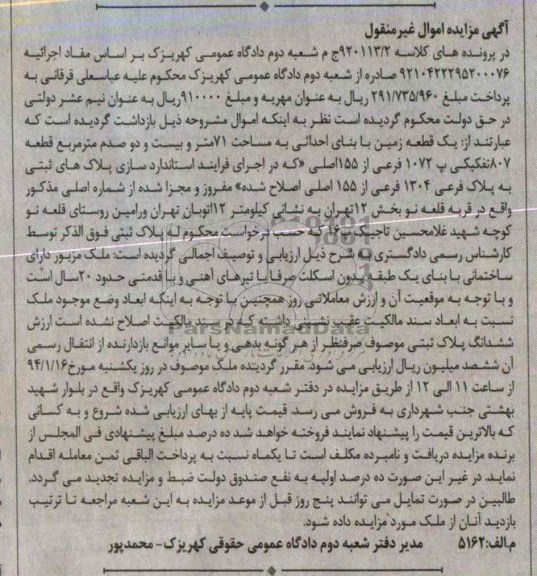 آگهی مزایده اموال غیرمنقول
در پرونده های کلاسه ۹۲۰۱۱۳/۲ج م شعبه دوم دادگاه عمومی کهریزک بر اساس مفاد اجرائیه
۹۲۱۰۴۲۲۲۹۵۲۰۰۰۷۶ صادره از شعبه دوم دادگاه عمومی کهریزک محکوم علیه عباسعلی قرقانی به
پرداخت مبلغ ۲۹۱/۷۳۵/۹۶۰ ریال به عنوان مهریه و مبلغ ۹۱۰۰۰۰ریال به عنوان نیم عشر دولتی
در حق دولت محکوم گردیده است نظر به اینکه اموال مشروحه ذیل بازداشت گردیده است که
عبارتند از: یک قطعه زمین با بنای احداثی به مساحت ۷۱متر و بیست و دو صدم مترمربع قطعه
۸۰۷تفکیکی پ ۱۰۷۲ فرعی از ۱۵۵اصلی «که در اجرای فرایند استاندارد سازی پلاک های ثبتی
به پلاک فرعی ۱۳۰۴ فرعی از ۱۵۵ اصلی اصلاح شده» مفروز و مجزا شده از شماره اصلی مذکور
واقع در قریه قلعه نو بخش ۱۲تهران به نشانی کیلومتر ۱۲اتوبان تهران ورامین روستای قلعه نو
کوچه شهید غلامحسین تاجیک پ۱۶ که حسب درخواست محکوم له پلاک ثبتی فوق الذکر توسط
کارشناس رسمی دادگستری به شرح ذیل ارزیابی و توصیف اجمالی گردیده است: ملک مزبور دارای
ساختمانی با بنای یک طبقه بدون اسکلت صرفا با تیرهای آهنی و با قدمتی حدود ۲۰سال است
و با توجه به موقعیت آن و ارزش معاملاتی روز همچنین با توجه به اینکه ابعاد وضع موجود ملک
نسبت به ابعاد سند مالکیت عقب نشینی داشته که در سند مالکیت اصلاح نشده است ارزش
ششدانگ پلاک ثبتی موصوف صرفنظر از هر گونه بدهی و یا سایر موانع بازدارنده از انتقال رسمی
آن ششصد میلیون ریال ارزیابی می شود: مقرر گردیده ملک موصوف در روز یکشنبه مورخ۹۴/۱/۱۶
از ساعت ۱۱ الی ۱۲ از طریق مزایده در دفتر شعبه دوم دادگاه عمومی کهریزک واقع در بلوار شهید
بهشتی جنب شهرداری به فروش می رسد. قیمت پایه از بهای ارزیابی شده شروع و به کسانی
که بالاترین قیمت را پیشنهاد نمایند فروخته خواهد شد ده درصد مبلغ پیشنهادی فی المجلس از
برنده مزایده دریافت و نامبرده مکلف است تا یکماه نسبت به پرداخت الباقی ثمن معامله اقدام
نماید. در غیر این صورت ده درصد اولیه به نفع صندوق دولت ضبط و مزایده تجدید می گردد.
طالبین در صورت تمایل می توانند پنج روز قبل از موعد مزایده به این شعبه مراجعه تا ترتیب
بازدید آنان از ملک مورد مزایده داده شود.
م.الف:۵۱۶۲ مدیر دفتر شعبه دوم دادگاه عمومی حقوقی کهریزک- محمدپور
ParsNamadData